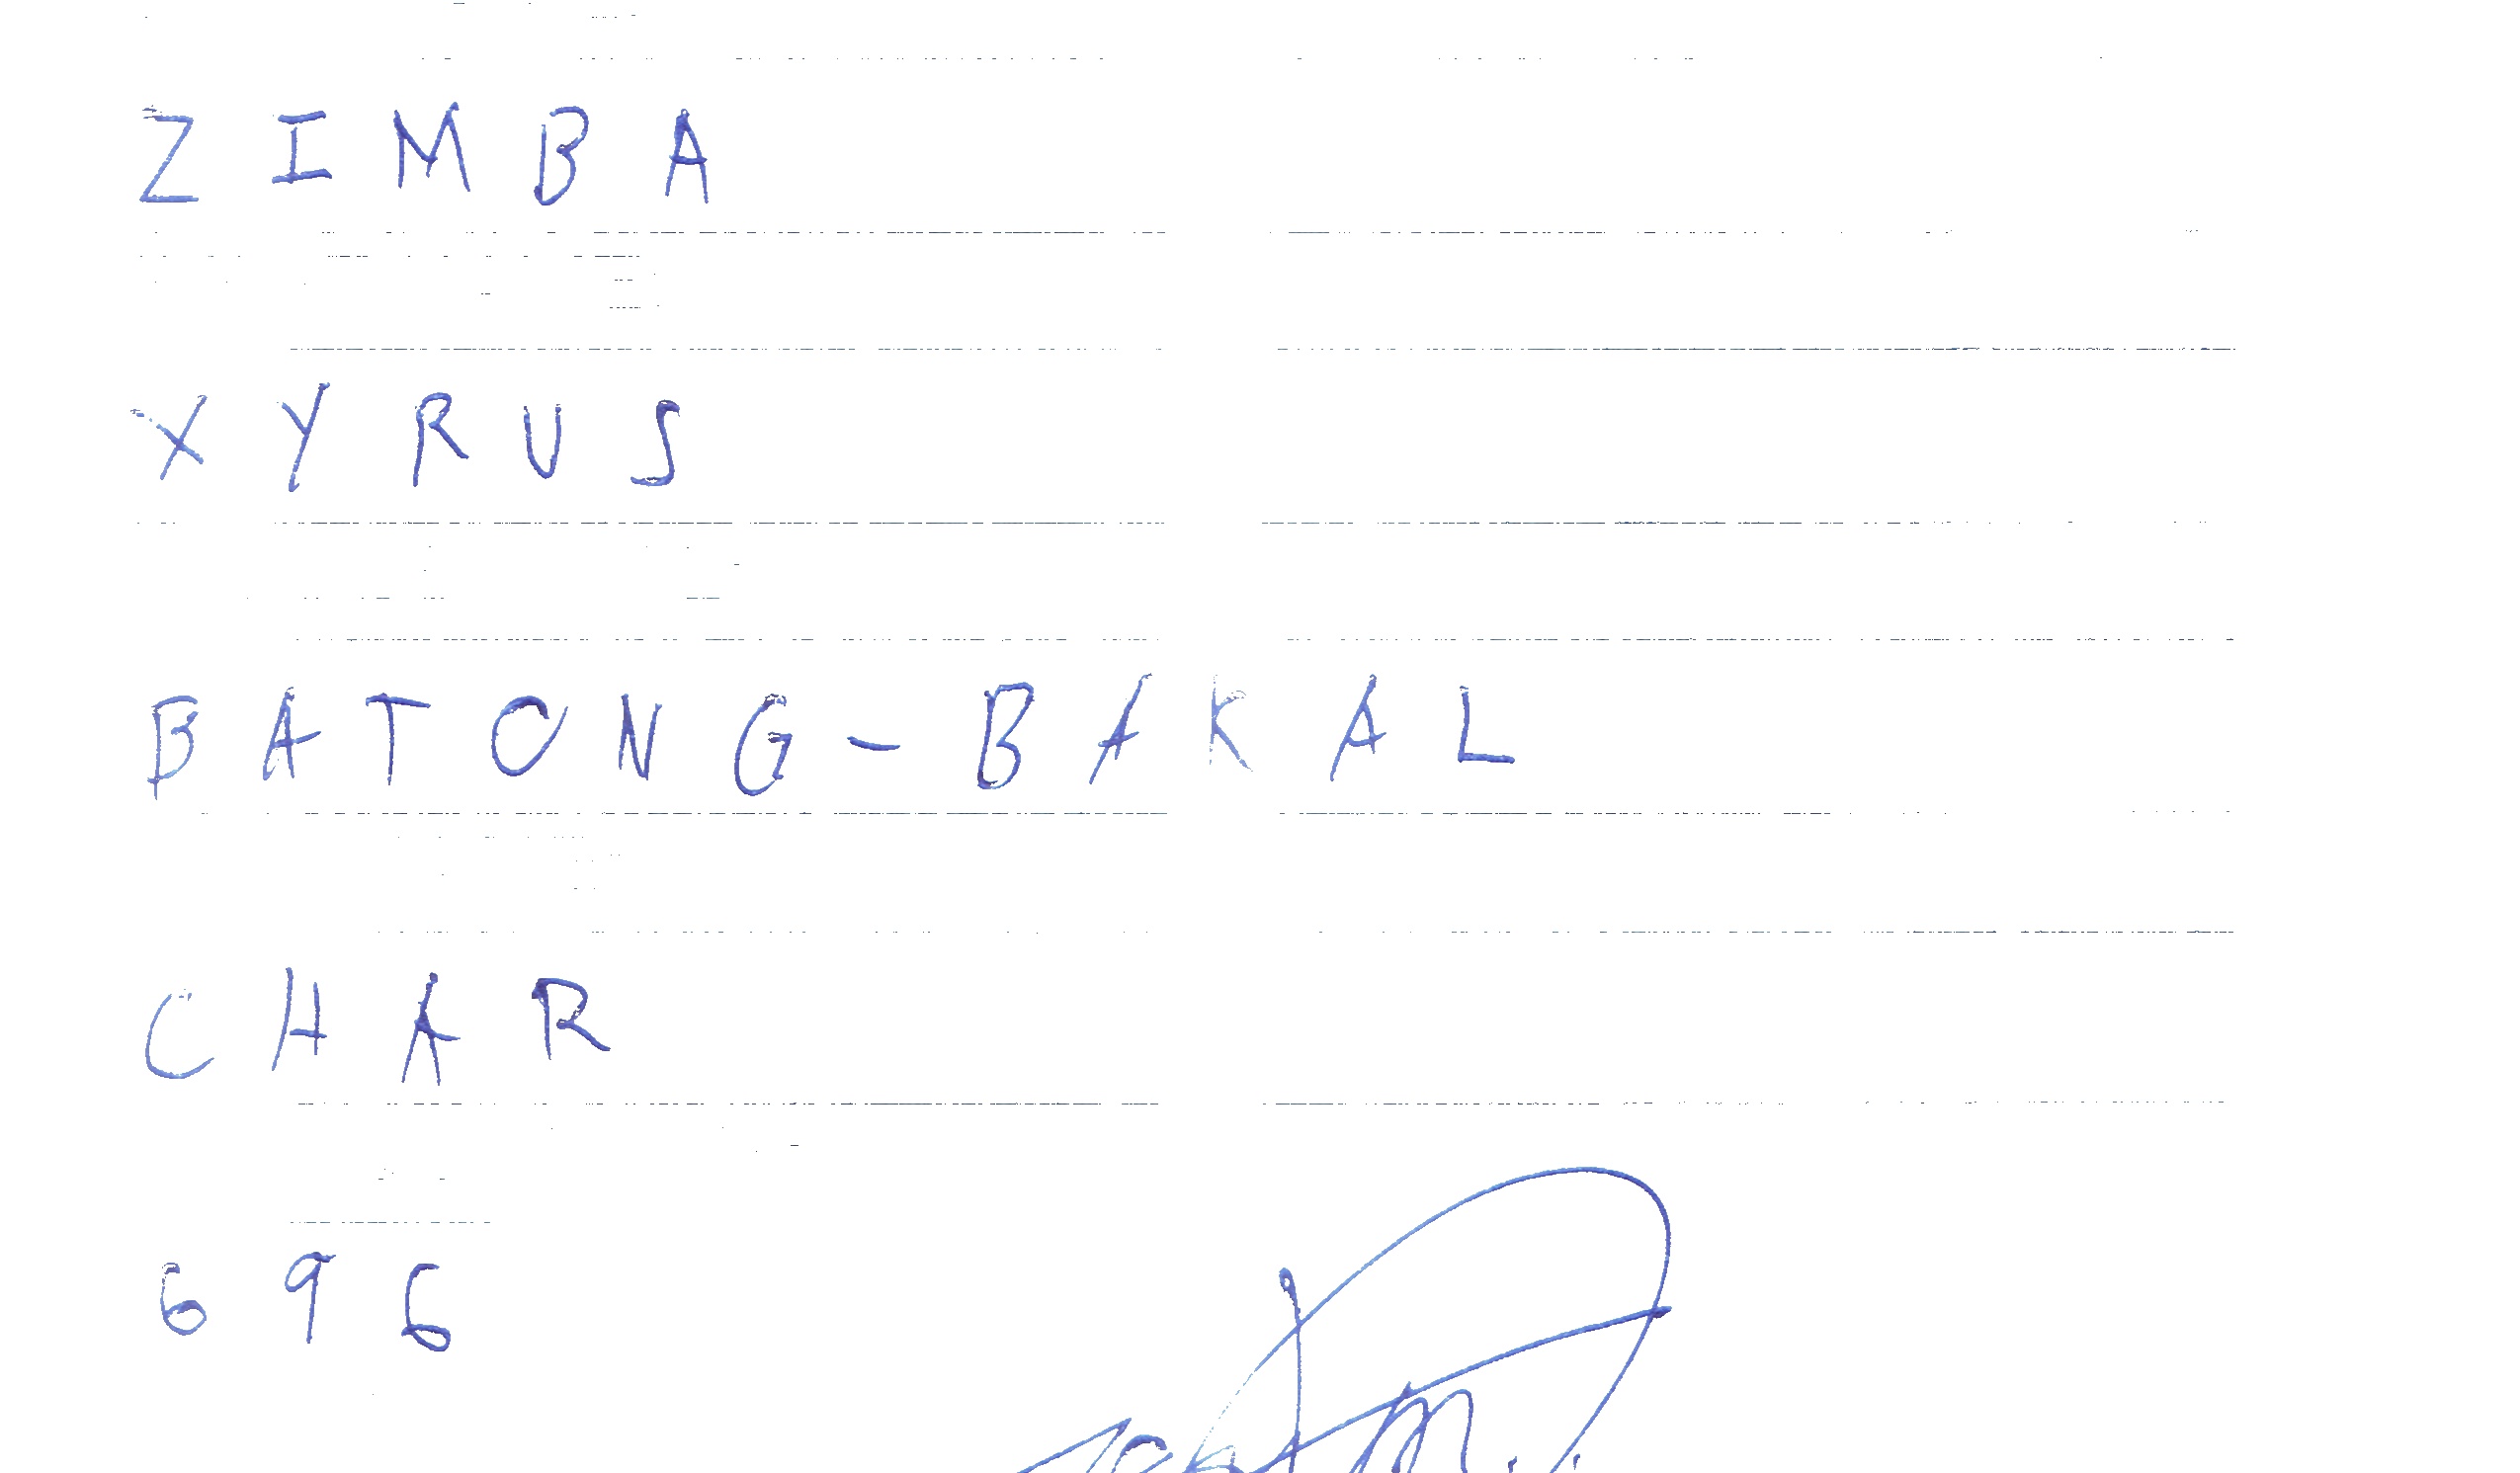 ZIMBA
XYRUS
BATONG-BAKAL
CHAR
696